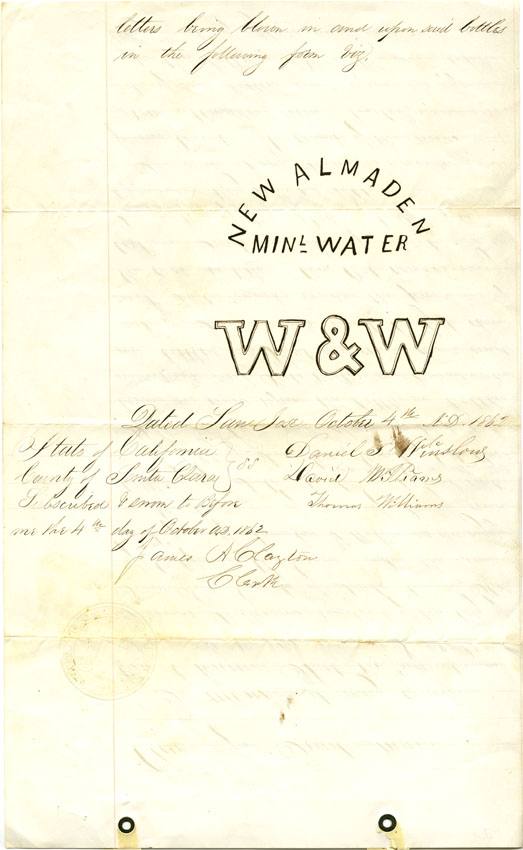 letters being blown in and upon said bottles
in the following form viz.
NEW ALMADEN
MINL WATER
W & W
Dated San Jose October 4th A.D. 1862
State of California } Daniel
County of Santa Clara } SS David Williams
Subscribed & sworn to before Thomas Williams
me the 4th day of October A.D. 1862
James A Clayton
Clerk